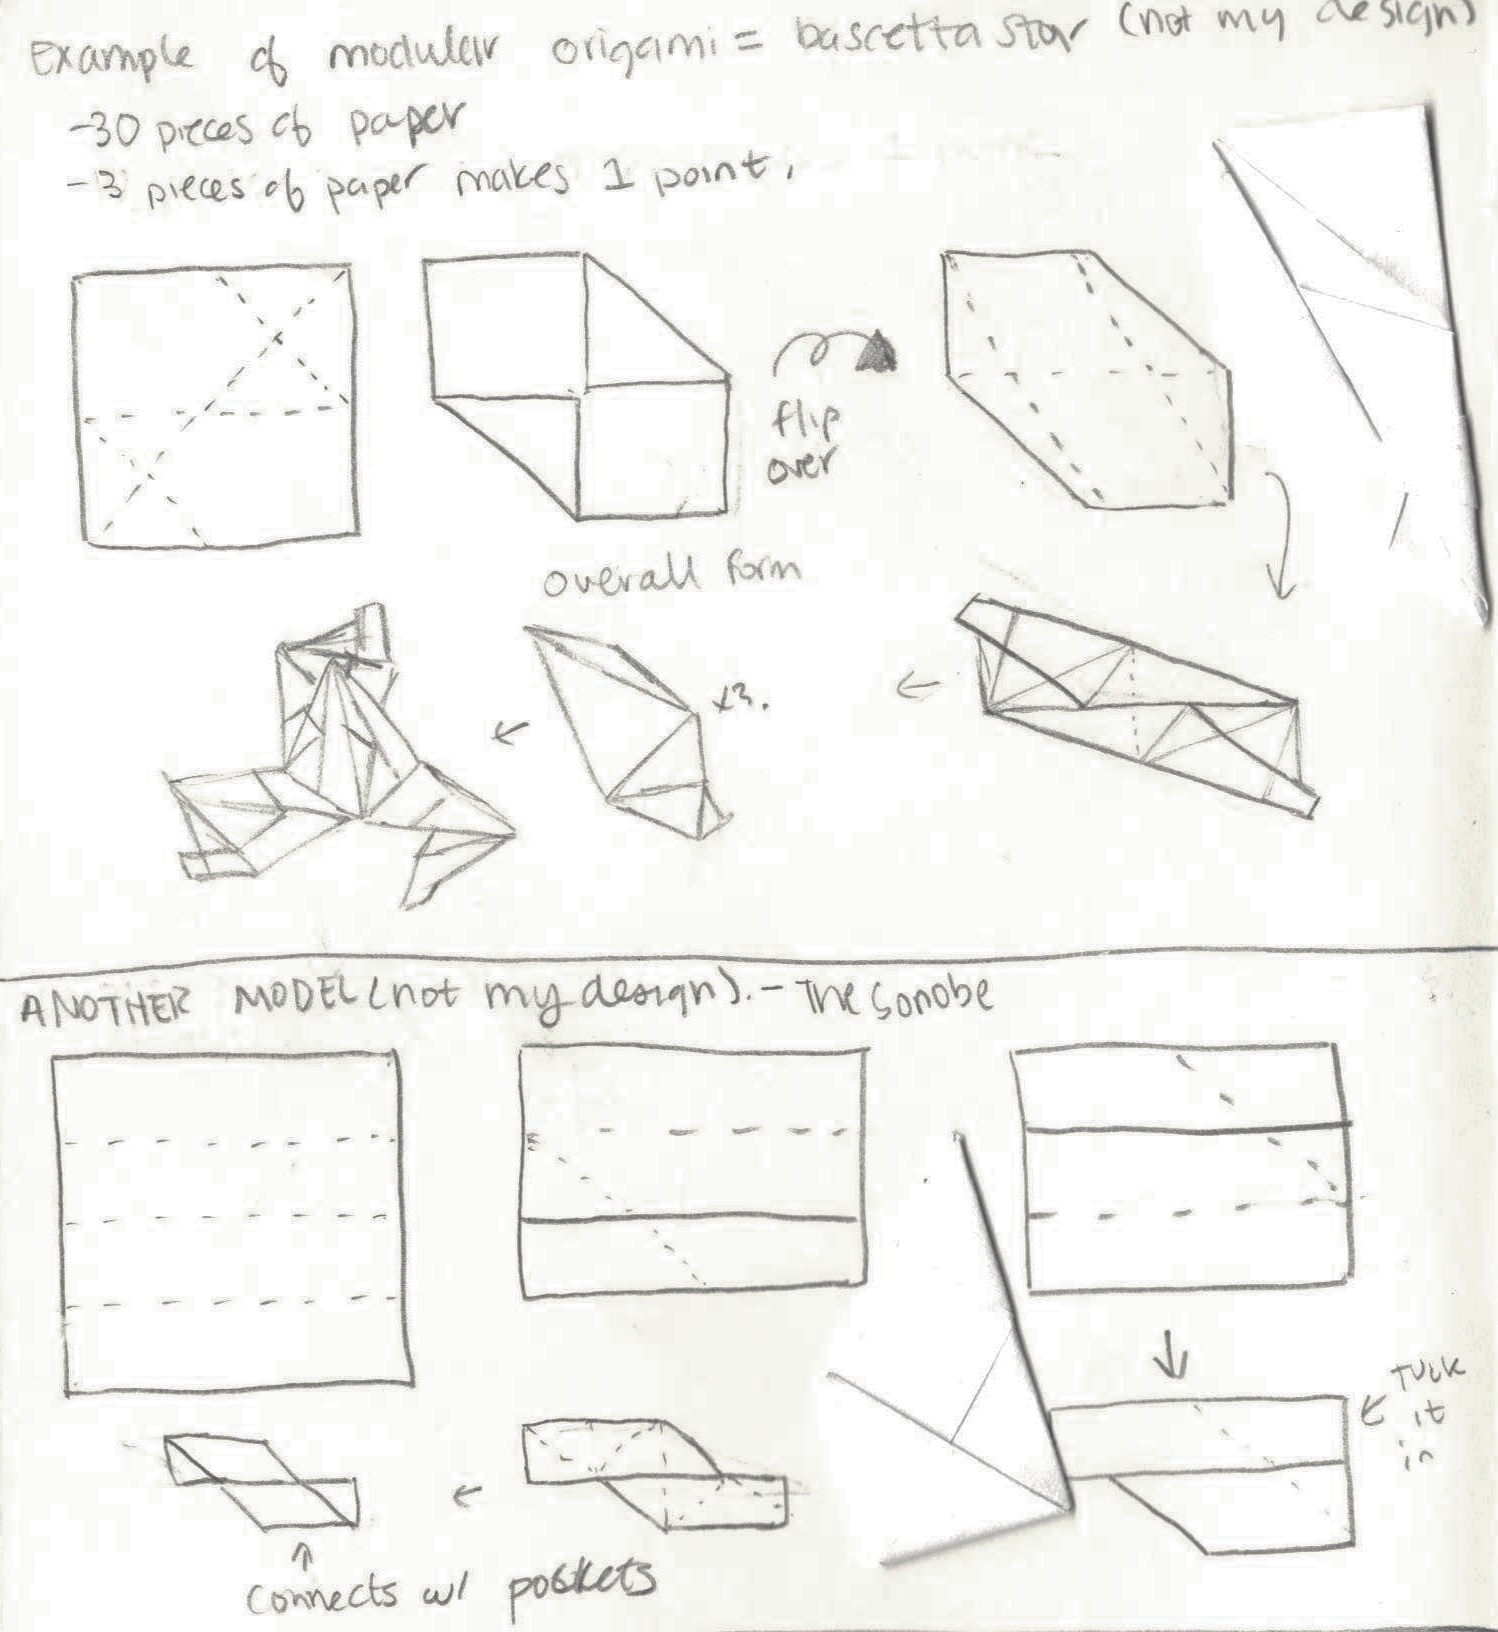 Example of modular origami = bascetta star (not my design)
-30 pieces of paper
-3 pieces of paper makes 1 point.
flip
over
overall form
x3.
ANOTHER MODEL (not my design). - The Sonobe
TUCK
it
in
Connects w/ pockets